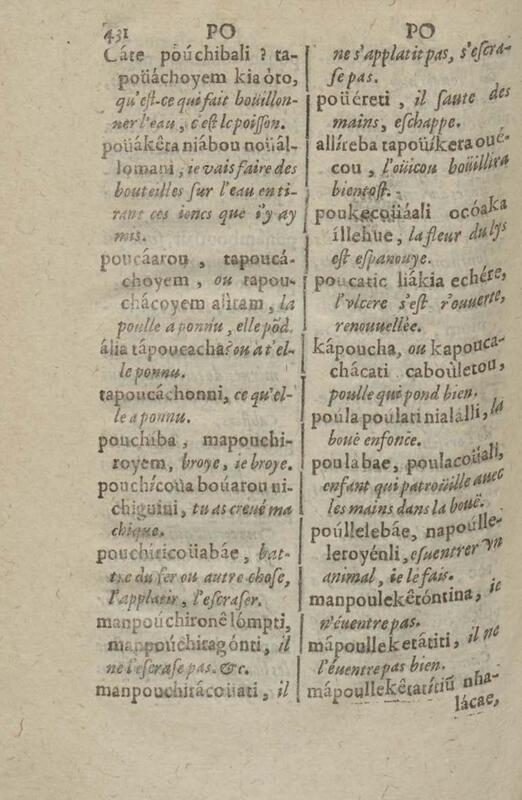 431 PO PO
Cáte poúchibali ? ta-
poüáchoyem kia óto,
qu'est-ce qui fait boüillon-
ner l'eau, c'est le poisson.
poüákêta niábou noüál-
lomani, ie vais faire des
bouteilles sur l'eau en ti-
rant ces ioncs que i'y ay
mis.
poucáarou, tapoucá-
choyem, ou tapou-
chácoyem alíram, la
poulle a ponnu, elle põd.
ália tápoucacha? ou a t'el-
le ponnu.
tapoucáchonni, ce qu'el-
le a ponnu.
pouchiba, mapouchi-
royem, broye, ie broye.
pouchícoüa boúarou ni-
chiguini, tu as creué ma
chique.
pouchiricoüabáe, bat-
tre du fer ou autre chose,
l'applatir, l'escraser.
manpoúchironê lómpti,
manpoúchiragónti, il
ne l'escrase pas. &c.
manpouchirácoüati, il
ne s'applatit pas, s'escra-
se pas.
poüéreti, il saute des
mains, eschappe.
allíreba tapoüíkera oué-
cou, l'oüicou boüillira
bientost.
poukecoüáali ocóaka
íllehuë, la fleur du lys
est espanouye.
poucatic liákia echére,
l'vlcere s'est r'ouuerte,
renouuellée.
kápoucha, ou kapouca-
chácati caboùletou,
poulle qui pond bien.
poúla poulati nialálli, la
bouë enfonce.
poulabae, poulacoüali,
enfant qui patroüille auec
les mains dans la bouë.
poúllelebáe, napoúlle-
leroyénli, esuentrer vn
animal, ie le fais.
manpoulekêróntina, ie
n'éuentre pas.
mápoulleketátiti, il ne
l'éuentre pas bien.
mápoullekêtatítiũ nha-
lácae,